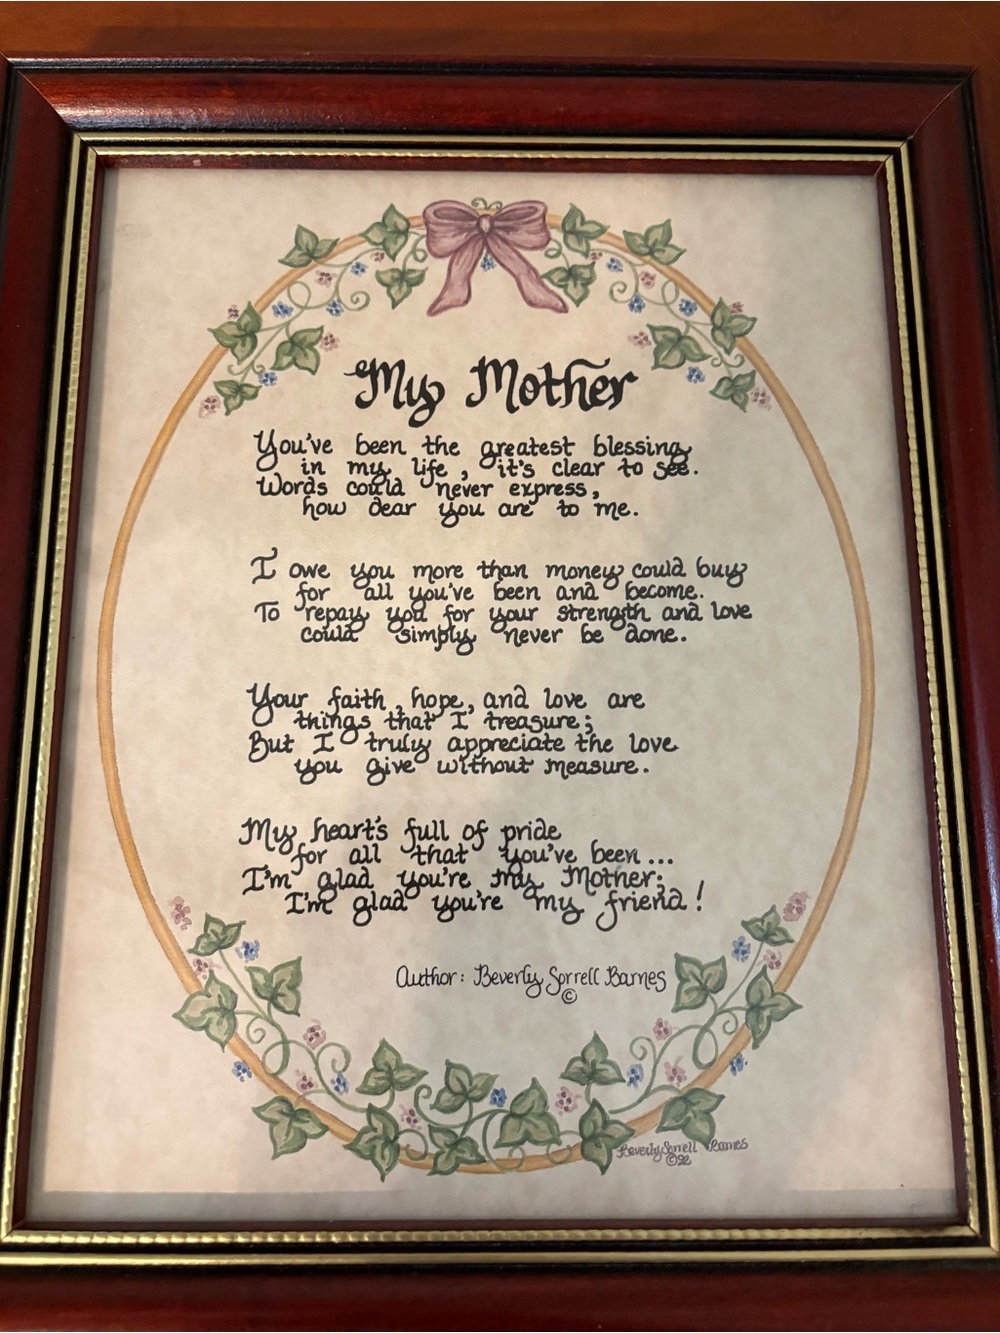 My Mother
You've been the greatest blessing
in my life, it's clear to see.
Words could never express,
how dear you are to me.
I owe you more than money could buy
for all you've been and become.
To repay you for your strength and love
could simply never be done.
Your faith, hope, and love are
things that I treasure;
But I truly appreciate the love
you give without measure.
My heart's full of pride
for all that you've been...
I'm glad you're my Mother;
I'm glad you're my friend!
Author: Beverly Sorrell Barnes
©
Beverly Sorrell Barnes
©92